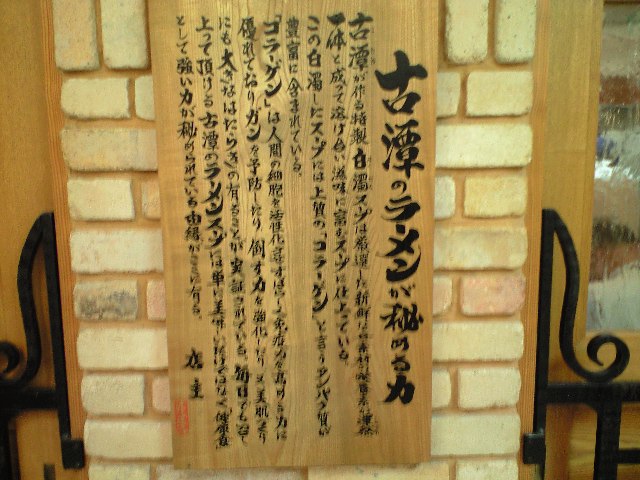 古潭のラーメンが秘める力
古潭が作る特製白濁スープは厳選した新鮮な
一体と成って溶け合い滋味に富むスープに仕上っている。
この白濁したスープには上質の「コラーゲン」と言うタンパク質が
豊富に含まれている。
「コラーゲン」は人間の細胞を活性化させすばい免疫力を高める力に
優れておりガンを予防したり、倒す力を強化したり又美肌作り
にも大きなはたらきの有ることが実証されている。毎日でも召し
上って頂ける古潭のラーメンスープは単に美味しいだけではなく健康食
として強い力が秘められている由縁がここに有る。
店主